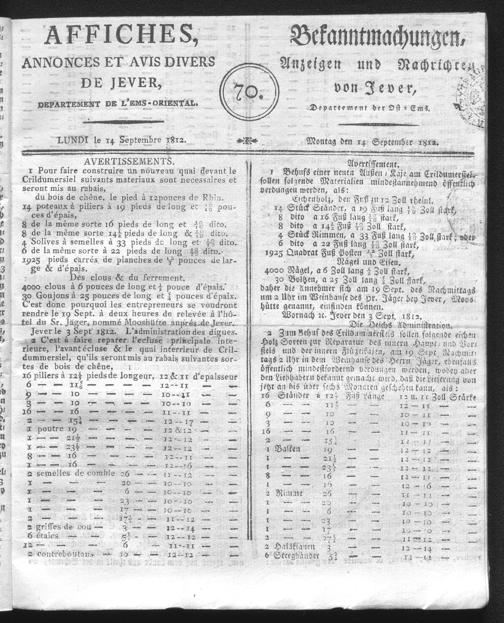 AFFICHES,
ANNONCES ET AVIS DIVERS
DE JEVER,
DEPARTEMENT DE L'EMS-ORIENTAL.
70.
Bekanntmachungen,
Anzeigen und Nachrichten
von Jever,
Departement der Ost-Ems.
LUNDI le 14 Septembre 1812.
Montag den 14 September 1812.
AVERTISSEMENTS.
1 Pour faire construire un nouveau quai devant le
Crildumersiel suivants materiaux sont necessaires et
seront mis au rabais,
du bois de chêne, le pied à 12 pouces de Rhin.
14 poteaux à piliers à 19 pieds de long et pou-
ces d'épais,
8 de la même sorte 16 pieds de long et dito.
8 de la même sorte pieds de long et dito.
4 Solives à semelles à 33 pieds de long et dito.
6 de la même sorte à 22 pieds de long dito.
1925 pieds carrés de planches de pouces de lar-
ge & d'épais.
Des clous & du ferrement.
4000 clous à 6 pouces de long et pouce d'épais.
30 Goujons à 25 pouces de long et pouces d'épais.
C'est donc pourquoi les entrepreneurs se voudront
rendre le 19 Sept. à deux heures de relevée à l'hô-
tel du Sr. Jäger, nommé Moonhütte auprès de Jever.
Jever le 3 Sept 1812. L'administration des digues.
2 C'est à faire reparer l'ecluse principale inte-
rieure, l'avantécluse & le quai interieur de Cril-
dummersiel, qu'ils seront mis au rabais suivants sor-
tes de bois de chêne,
16 piliers à 12½ pieds de longueur, 12 & 11 d'epaisseur
6 — 11½ — — 12--11 —
3 — 10 — — 10--11 —
3 — 10 — — 10--10 —
16 — 16 — — 11--11 —
2 — — — 12--17 —
1 poutre 19 — — 12 & 12 —
1 — 21½ — — 12--12 —
1 — 23½ — — 12--12 —
8 — 16 — — 11--12 —
1 — 16 — — —
2 semelles de comble 26 — — 11--12 —
1 — 20 — — 10--10 —
1 — 26 — — 10--10 —
1 — 23 — — 10--10 —
2 — — — 11--12 —
2 griffes de cou — 3 — — 12--14 —
6 étaies — — — 12--12 —
12 — 6 — — 11--11 —
2 contreboutans — 10 — — 12--12 —
Avertissement.
1 Behufs einer neuen Außen-Kaje am Crildumersiel
sollen folgende Materialien mindestannehmend öffentlich
verdungen werden, als:
Eichenholz, den Fuß in 12 Zoll rheinl.
14 Stück Ständer, a 19 Fuß lang Zoll stark,
8 dito a 16 Fuß lang Zoll stark,
8 dito a Fuß lang Zoll stark,
4 Stück Rimmen, a 33 Fuß lang Zoll stark, oder
6 dito a 22 Fuß lang Zoll stark,
1925 Quadrat Fuß Posten Zoll stark,
Nägel und Eisen.
4000 Nägel, a 6 Zoll lang Zoll stark,
30 Bolzen, a 25 Zoll lang Zoll stark,
daher die Annehmer sich am 19 Sept. des Nachmittags
um 2 Uhr im Weinhause des Hr. Jäger bey Jever, Moos-
hütte genannt, einfinden können.
Wornach 2c. Jever den 3 Sept. 1812.
Die Deichs Administration.
2 Zum Behuf des Crildumersiels sollen folgende eichen
Holz Sorten zur Reparatur des innern Haupt- und Vor-
siels und der innern Flügelkajen, am 19 Sept Nachmit-
tags um 2 Uhr in dem Weinhause des Herrn Jäger, ebenfals
öffentlich mindestfordernd verdungen werden, wobey aber
den Liebhabern bekannt gemacht wird, daß die Lieferung von
jetzt an bis über sechs Monaten geschehen kann, als:
16 Ständer a 12½ Fuß Länge 12 u. 11 Zoll Stärke
6 — 11½ — — 12--11 —
3 — 10 — — —
3 — 10 — — —
16 — 16 — — —
2 — — — —
1 Balken 19 — — 12--12 —
1 — 21½ — — 12--12 —
1 — 23½ — — 12--12 —
8 — 16 — — —
1 — 16 — — —
2 Rimme 26 — — —
1 — 20 — — 10--10 —
1 — 26 — — 10--10 —
1 — 23 — — 10--10 —
2 — — — 11--12 —
2 Halsklauen 3 — — 12--14 —
6 Steegbänder — — 12--12 —